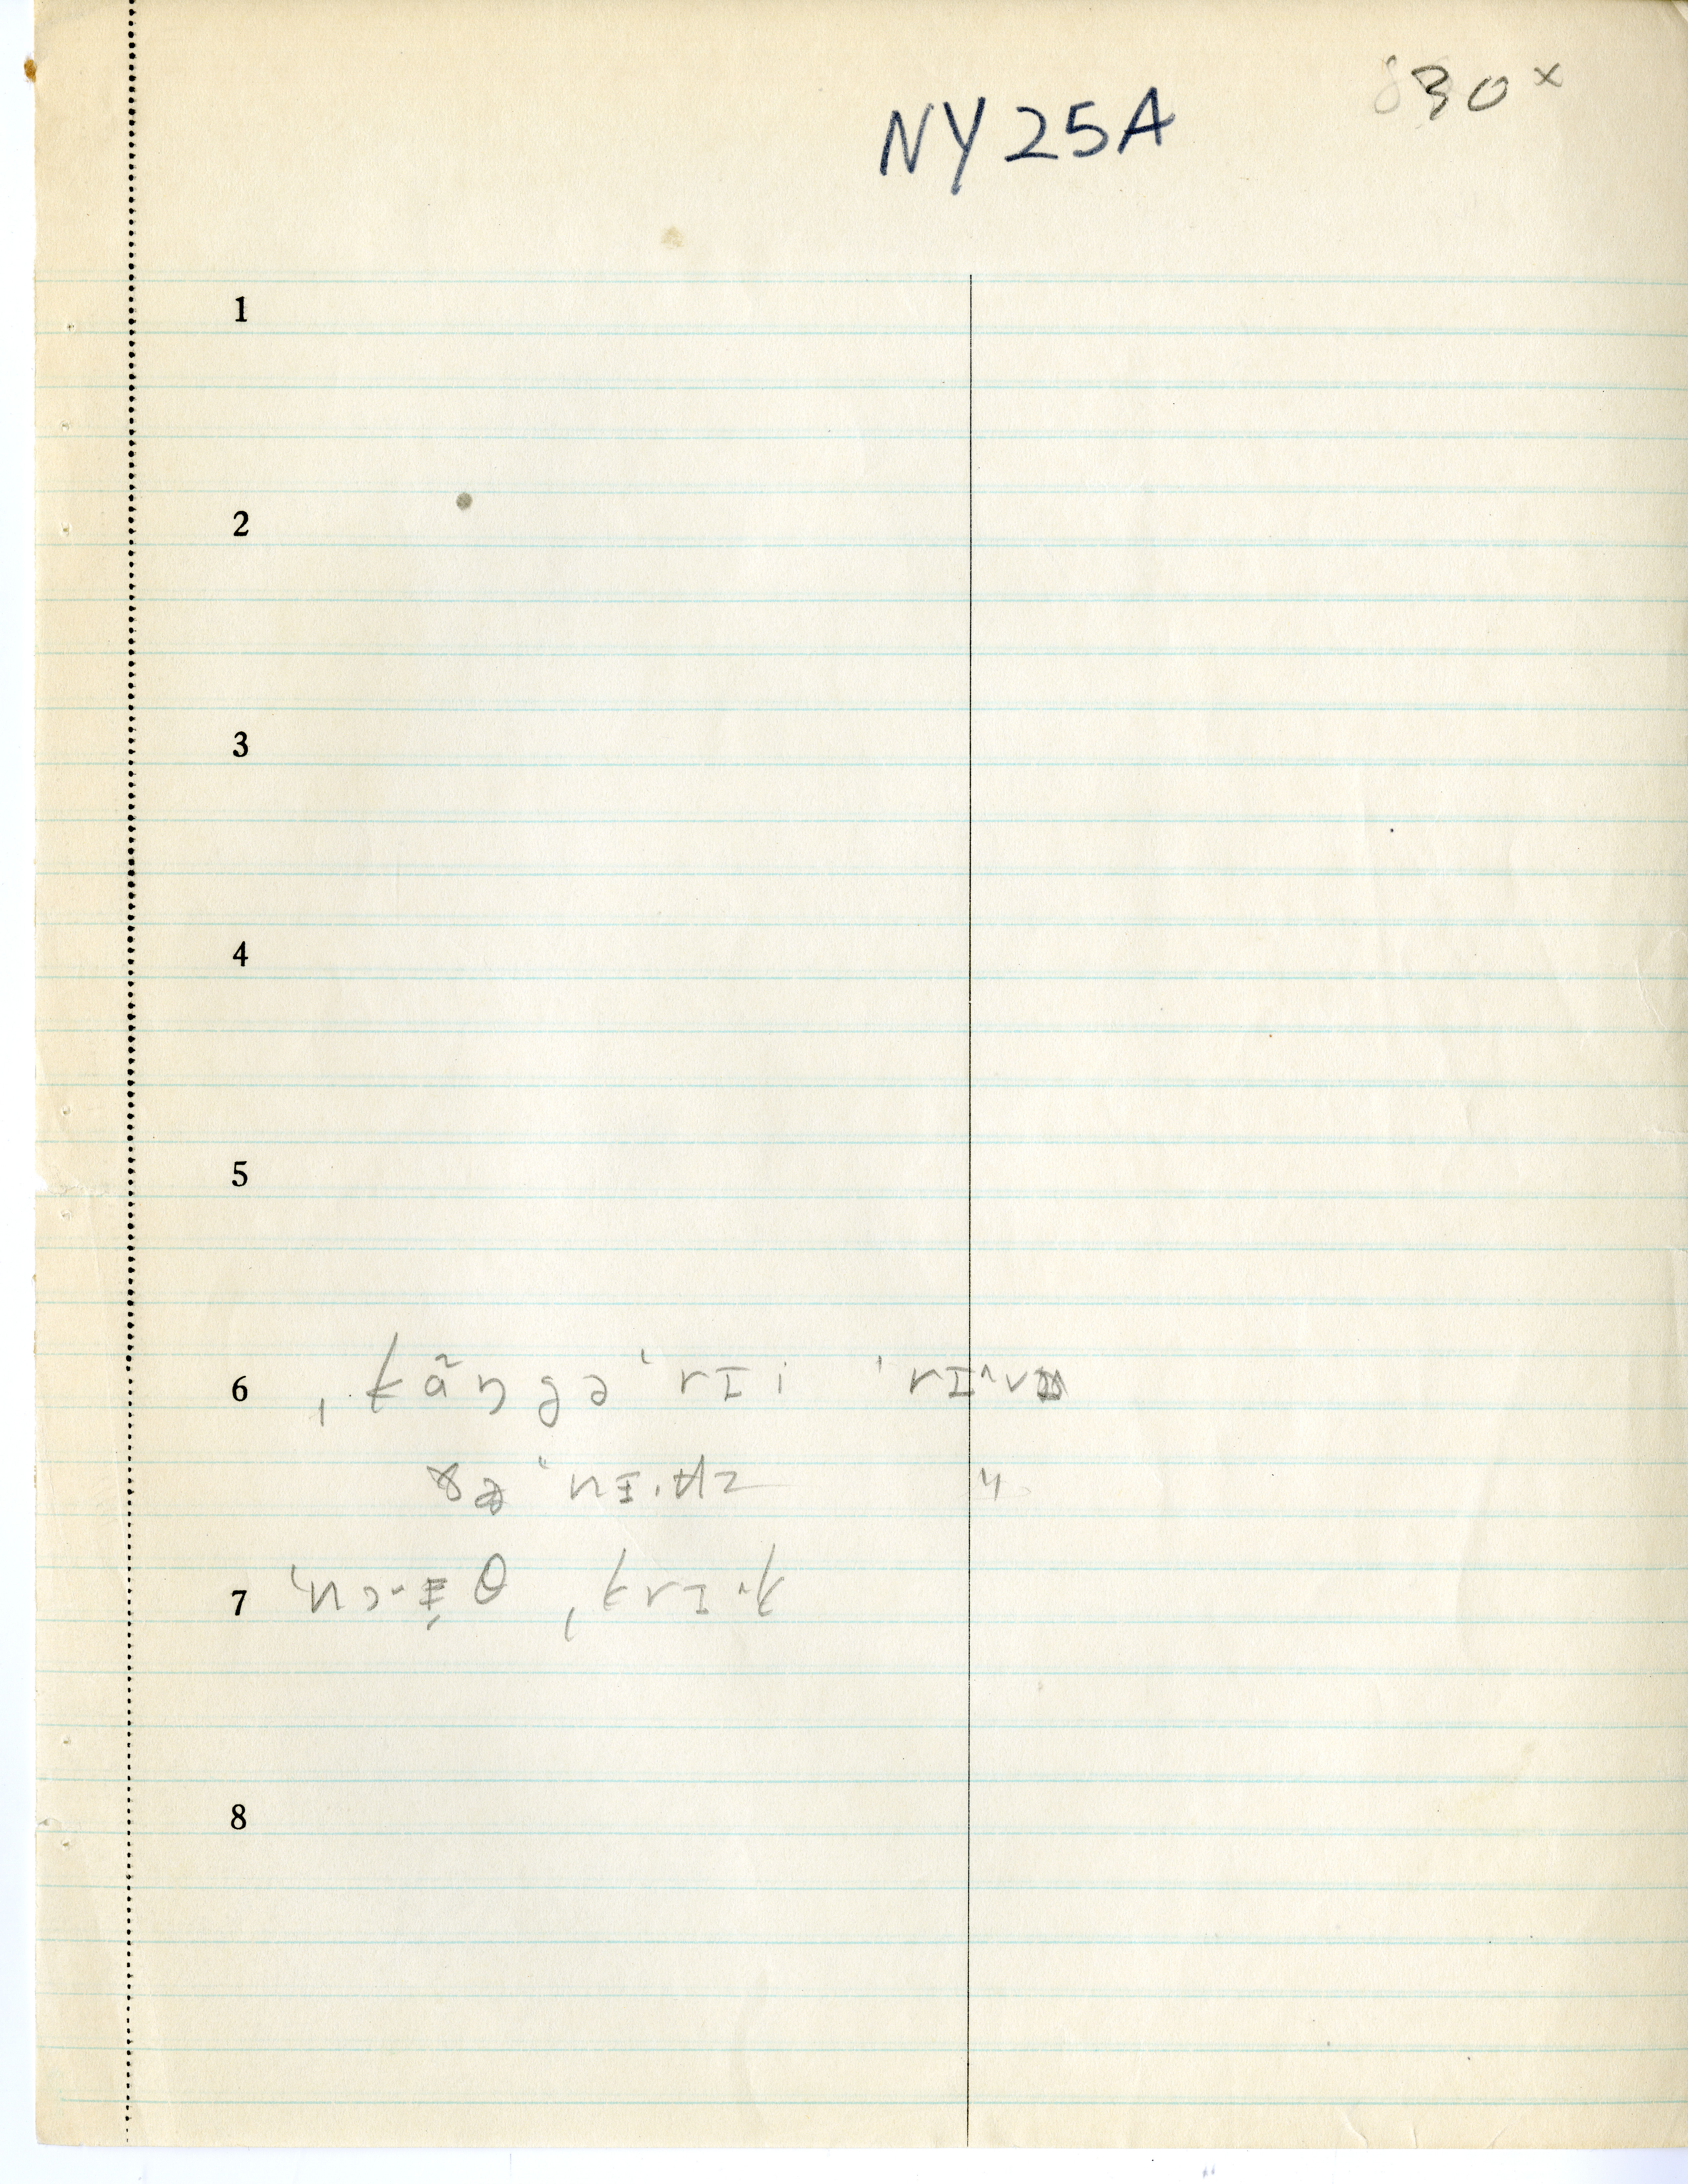 NY 25A
30 x
1
2
3
4
5
6 ˌkãŋgəˈrɪi ˈrɪ^və
ðə ˈnɪ.ʉz
7 ˈnɔ.ɪ̵θ ˌkrɪ^k
8